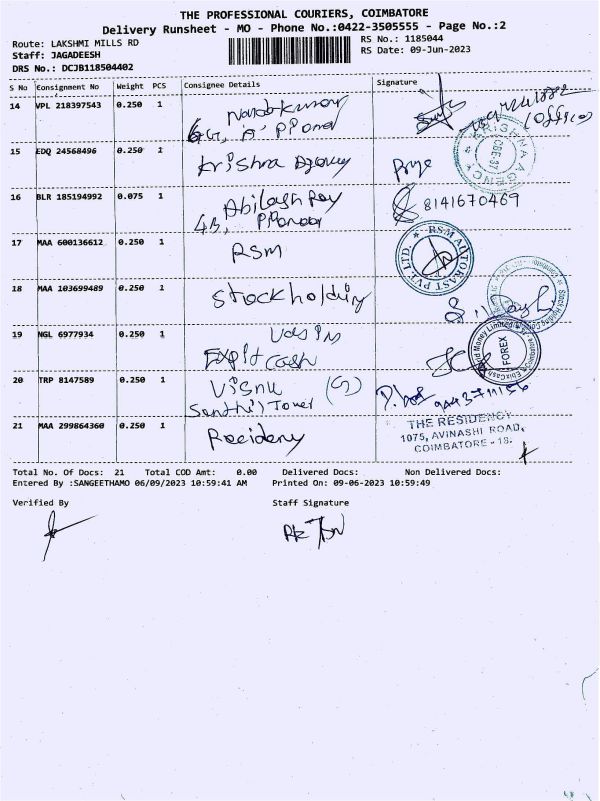 THE PROFESSIONAL COURIERS, COIMBATORE
Delivery Runsheet - MO - Phone No.:0422-3505555 - Page No.:2
Route: LAKSHMI MILLS RD
RS No.: 1185044
Staff: JAGADEESH
RS Date: 09-Jun-2023
DRS No.: DCJB118504402
S No Consignment No Weight PCS Consignee Details Signature
14 VPL 218397543 0.250 1
(Office)
15 EDQ 24568496 0.250 1 Krishna Agency
KRISHNA AGENCY CBE-37
16 BLR 185194992 0.075 1 Abilash Roy 8141670469
4B,
17 MAA 600136612 0.250 1 RSM
RSM AUTOKAST PVT. LTD.
18 MAA 103699489 0.250 1 Stock holding
19 NGL 6977934 0.250 1
cash
FOREX
20 TRP 8147589 0.250 1
Senthil Tower
21 MAA 299864360 0.250 1 Residency
THE RESIDENCY
1075, AVINASHI ROAD,
COIMBATORE - 18.
Total No. Of Docs: 21 Total COD Amt: 0.00 Delivered Docs: Non Delivered Docs:
Entered By :SANGEETHAMO 06/09/2023 10:59:41 AM Printed On: 09-06-2023 10:59:49
Verified By Staff Signature